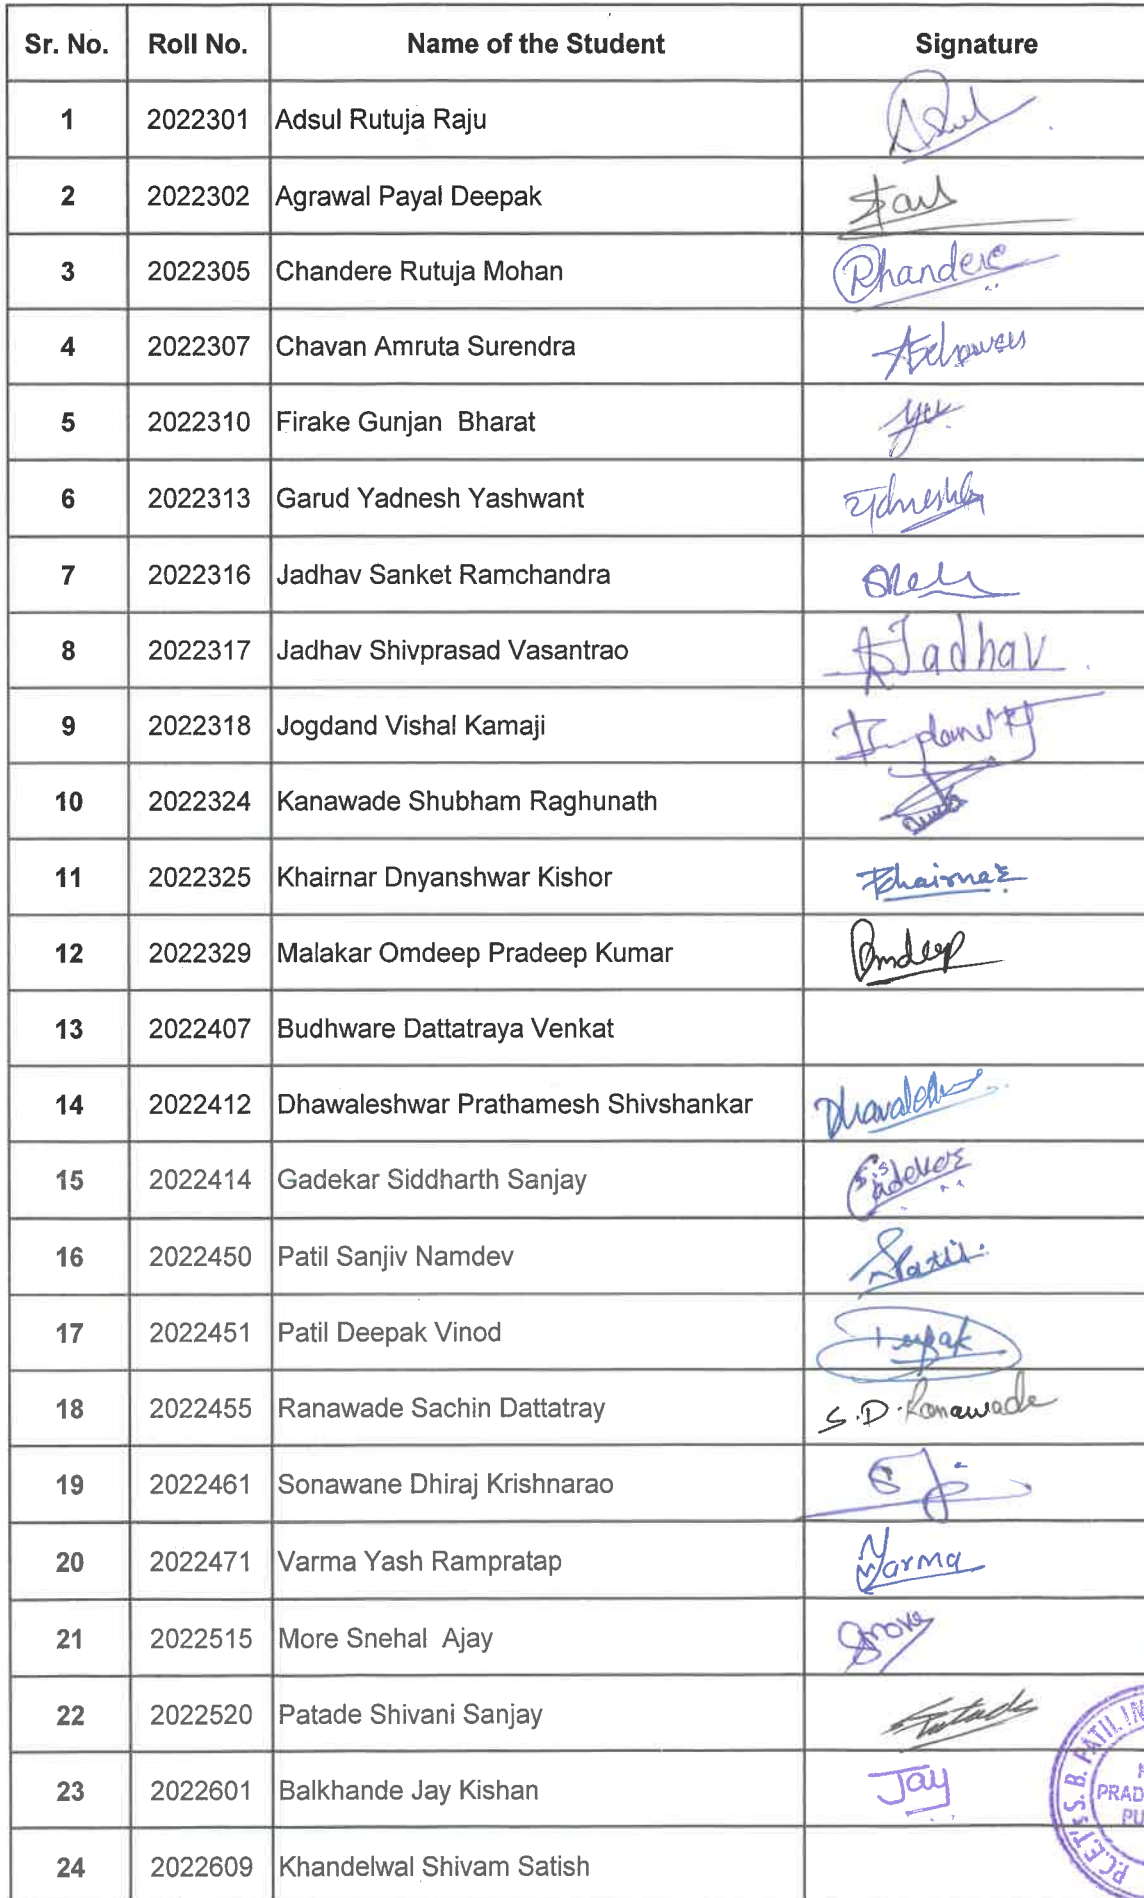 Sr. No. Roll No. Name of the Student Signature
1 2022301 Adsul Rutuja Raju
2 2022302 Agrawal Payal Deepak
3 2022305 Chandere Rutuja Mohan Rhandere
4 2022307 Chavan Amruta Surendra
5 2022310 Firake Gunjan Bharat
6 2022313 Garud Yadnesh Yashwant
7 2022316 Jadhav Sanket Ramchandra
8 2022317 Jadhav Shivprasad Vasantrao Jadhav
9 2022318 Jogdand Vishal Kamaji
10 2022324 Kanawade Shubham Raghunath
11 2022325 Khairnar Dnyanshwar Kishor Khairnar
12 2022329 Malakar Omdeep Pradeep Kumar Omdeep
13 2022407 Budhware Dattatraya Venkat
14 2022412 Dhawaleshwar Prathamesh Shivshankar
15 2022414 Gadekar Siddharth Sanjay Gadekar
16 2022450 Patil Sanjiv Namdev SPatil
17 2022451 Patil Deepak Vinod Deepak
18 2022455 Ranawade Sachin Dattatray S.D.Ranawade
19 2022461 Sonawane Dhiraj Krishnarao
20 2022471 Varma Yash Rampratap Varma
21 2022515 More Snehal Ajay Smore
22 2022520 Patade Shivani Sanjay
23 2022601 Balkhande Jay Kishan Jay
24 2022609 Khandelwal Shivam Satish
P.C.E.T'S S. B. PATIL IN
PRAD
PU